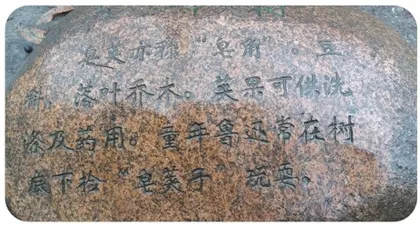 皂荚亦称“皂角”。豆
科，落叶乔木。荚果可供洗
涤及药用。童年鲁迅常在树
底下捡“皂荚子”玩耍。